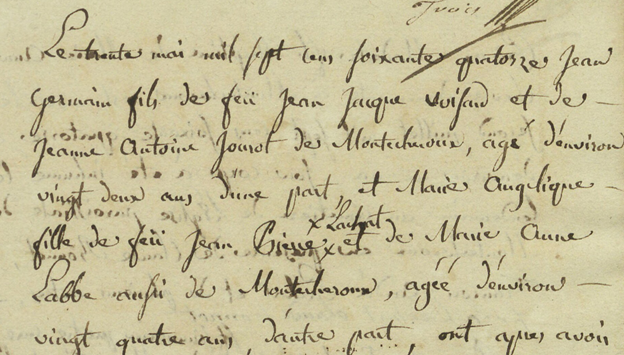 Trois
Le trente mai mil sept cens soixante quatorze Jean
Germain fils de feü Jean Jacque vuisard et de
Jeanne Antoine Jourot de Montecheroux, agé d'environ
vingt deux ans d'une part, et Marie Angelique
x Lachat
fille de feü Jean Pierre x et de Marie Anne
Labbe aussi de Montecheroux, agéé d'environ
vingt quatre ans, d'autre part, ont apres avoir